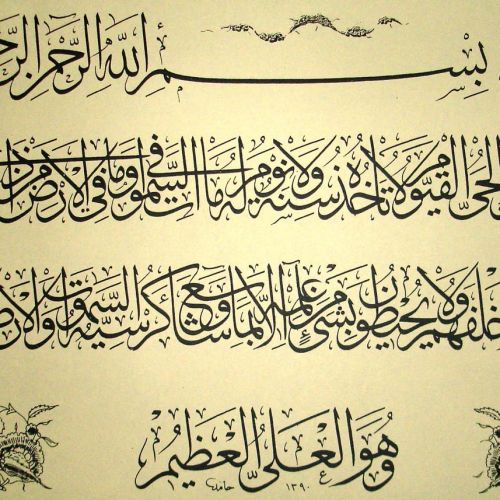 بِسْمِ اللَّهِ الرَّحْمَنِ الرَّحِ
الحَيُّ القَيُّومُ لَا تَأْخُذُهُ سِنَةٌ وَلَا نَوْمٌ لَهُ مَا فِي السَّمَوَاتِ وَمَا فِي الْأَرْضِ مَنْ
خَلْفَهُمْ وَلَا يُحِيطُونَ بِشَيْءٍ مِنْ عِلْمِهِ إِلَّا بِمَا شَاءَ وَسِعَ كُرْسِيُّهُ السَّمَوَاتِ وَالْأَرْضَ
وَهُوَ الْعَلِيُّ الْعَظِيمُ
حامد ١٣٩٠